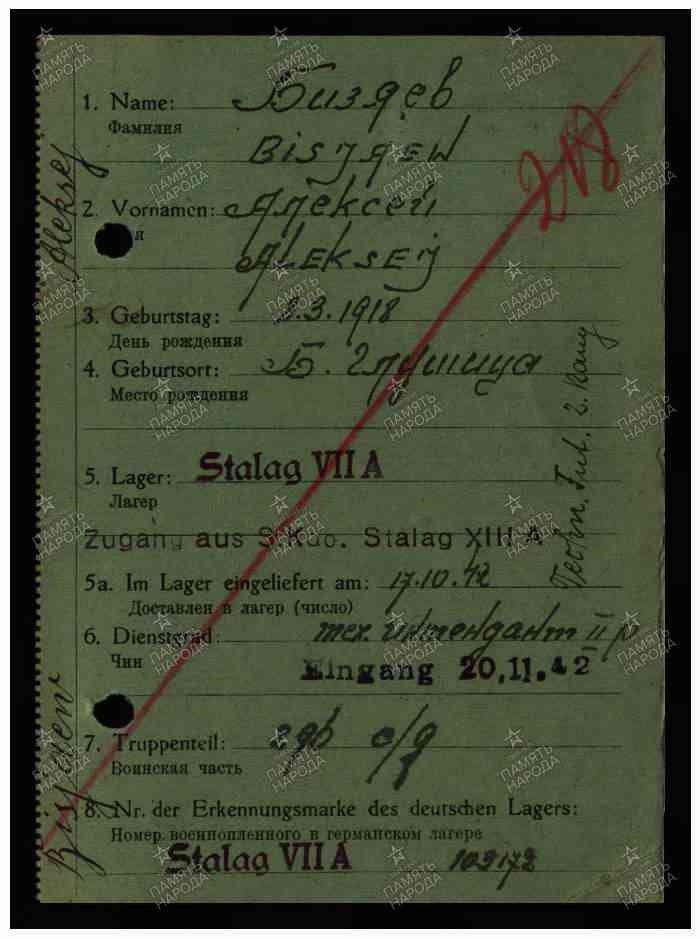 1. Name: Бизяев
Фамилия
Bisjaew
2. Vornamen: Алексей
я
Aleksej
3. Geburtstag: 3.3.1918
День рождения
4. Geburtsort: Б. Глушица
Место рождения
5. Lager: Stalag VII A
Лагер
Zugang aus Stalag XIII A
5a. Im Lager eingeliefert am: 17.10.42
Доставлен в лагер (число)
6. Dienstgrad: тех. интендант II р
Чин
Eingang 20.11.42
7. Truppenteil: с/д
Воинская часть
8. Nr. der Erkennungsmarke des deutschen Lagers:
Номер военнопленного в германском лагере
Stalag VII A 103172
Bisjaew Aleksej
Techn. Int. 2. Rang
ПАМЯТЬ
НАРОДА